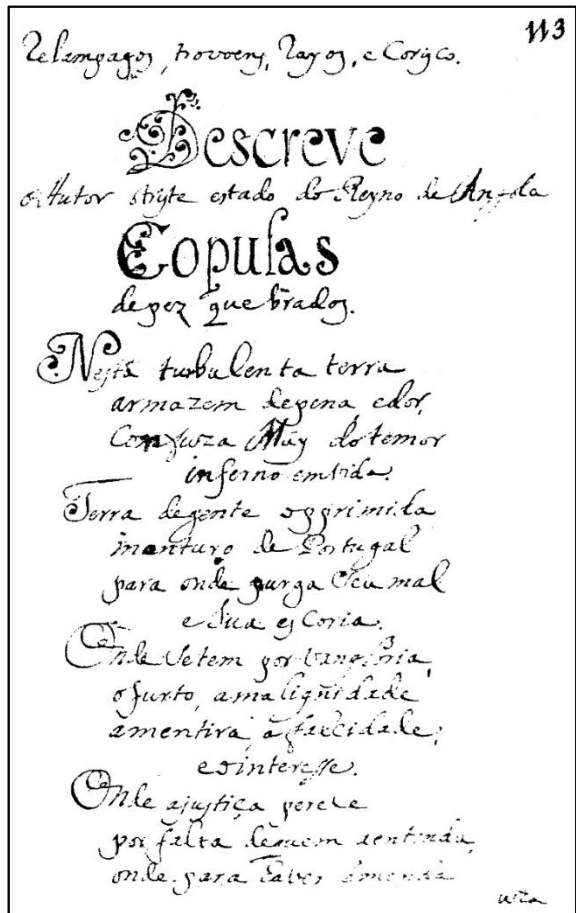 113
Relampagos, trovoens, Rayos, e Corisco.
Descreve
o Autor o triste estado do Reyno de Angola
Copulas
de pez quebrados.
Nesta turbulenta terra
armazem de pena, e dor,
Confuza May do temor
inferno em vida.
Terra de gente opprimida
monturo de Portugal
para onde purga o seu mal
e sua escoria.
Onde se tem por vangloria,
o furto, a maliguidade
a mentira, a falcidade,
e o interesse.
Onde a justiça perece
por falta de quem a entenda,
onde para haver emenda